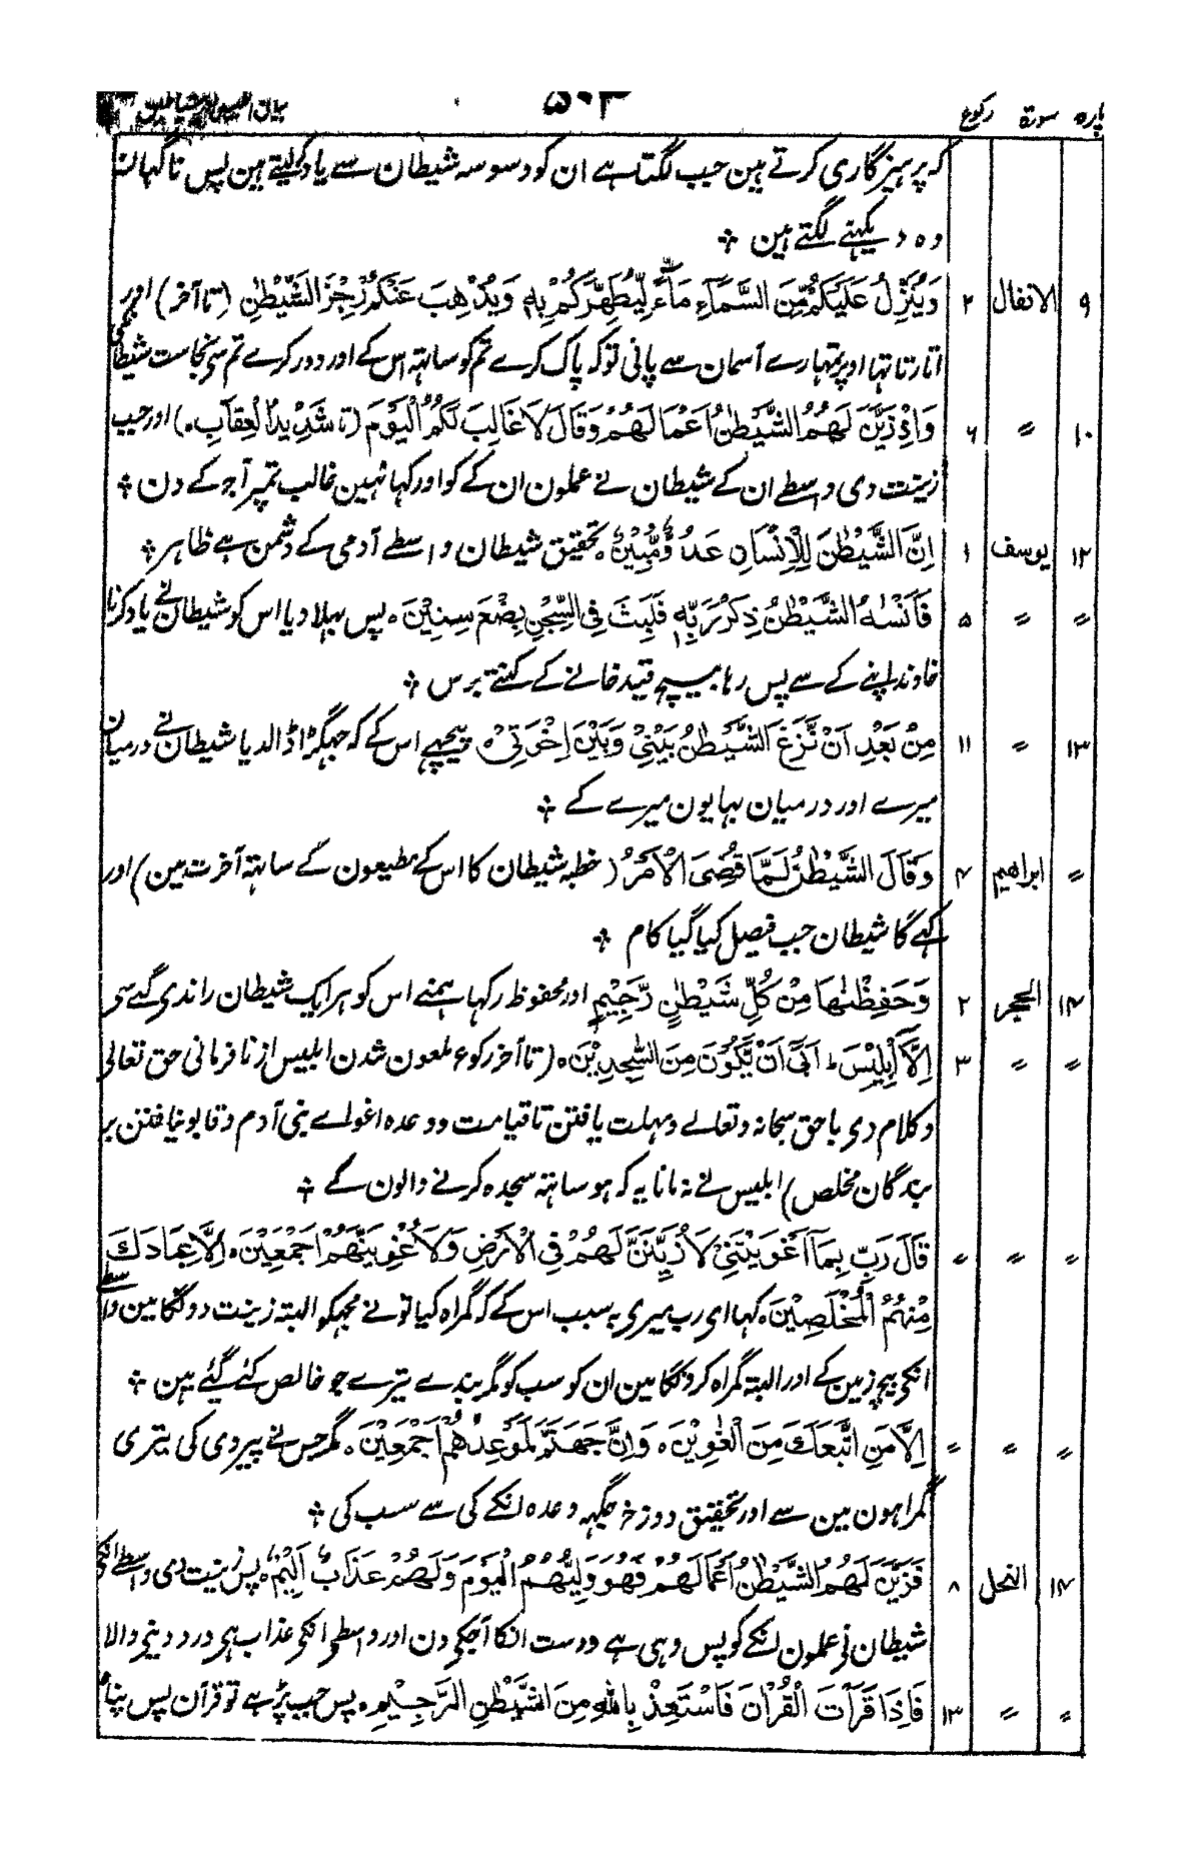 پارہ سورۃ رکوع ۵۰۳ بیان ابلیس و شیاطین
کہ پرہیزگاری کرتے ہین جب لگتا ہے ان کو وسوسہ شیطان سے یاد کرلیتے ہین پس ناگہان
وہ دیکہنے لگتے ہین ÷
۹ الانفال ۲ وَيُنَزِّلُ عَلَيْكُمْ مِّنَ السَّمَآءِ مَآءً لِّيُطَهِّرَكُمْ بِهٖ وَيُذْهِبَ عَنْكُمْ رِجْزَ الشَّيْطٰنِ (تاآخر) اور
اتارتا تہا اوپر تمہارے آسمان سے پانی توکہ پاک کرے تم کو ساتہ اس کے اور دور کرے تم سے نجاست شیطان کی
۱۰ ″ ۶ وَاِذْ زَيَّنَ لَهُمُ الشَّيْطٰنُ اَعْمَالَهُمْ وَقَالَ لَا غَالِبَ لَكُمُ الْيَوْمَ (تا شَدِيْدُ الْعِقَابِ ٥) اور جب
زینت دی واسطے ان کے شیطان نے عملون ان کے کو اور کہا نہین غالب تمپر آج کے دن ÷
۱۲ یوسف ۱ اِنَّ الشَّيْطٰنَ لِلْاِنْسَانِ عَدُوٌّ مُّبِيْنٌ ٥ تحقیق شیطان واسطے آدمی کے دشمن ہے ظاہر ÷
″ ″ ۵ فَاَنْسٰهُ الشَّيْطٰنُ ذِكْرَ رَبِّهٖ فَلَبِثَ فِى السِّجْنِ بِضْعَ سِنِيْنَ ٥ پس بہلا دیا اس کو شیطان نے یاد کرنا
خاوند اپنے کے سے پس رہا بیچ قید خانے کے کتنے برس ÷
۱۳ ″ ۱۱ مِنْۢ بَعْدِ اَنْ نَّزَغَ الشَّيْطٰنُ بَيْنِىْ وَبَيْنَ اِخْوَتِىْ ٥ پیچہے اس کے کہ جہگڑا ڈالدیا شیطان نے درمیان
میرے اور درمیان بہایون میرے کے ÷
″ ابراھیم ۴ وَقَالَ الشَّيْطٰنُ لَمَّا قُضِىَ الْاَمْرُ (خطبہ شیطان کا اس کے مطیعون کے ساتہ آخرت مین) اور
کہے گا شیطان جب فیصل کیا گیا کام ÷
۱۴ الحجر ۲ وَحَفِظْنٰهَا مِنْ كُلِّ شَيْطٰنٍ رَّجِيْمٍ اور محفوظ رکہا ہمنے اس کو ہر ایک شیطان راندے گئے سے
″ ″ ۳ اِلَّآ اِبْلِيْسَ ط اَبٰٓى اَنْ يَّكُوْنَ مِنَ السّٰجِدِيْنَ ٥ (تا آخر رکوع ملعون شدن ابلیس از نافرمانی حق تعالی
وکلام وی باحق سبحانہ وتعالے ومہلت یافتن تا قیامت ووعدہ اغوائے بنی آدم وقابو نیافتن بر
بندگان مخلص) ابلیس نے نہ مانا یہ کہ ہو ساتہ سجدہ کرنے والون کے ÷
″ ″ ″ قَالَ رَبِّ بِمَآ اَغْوَيْتَنِىْ لَاُزَيِّنَنَّ لَهُمْ فِى الْاَرْضِ وَلَاُغْوِيَنَّهُمْ اَجْمَعِيْنَ ٥ اِلَّا عِبَادَكَ
مِنْهُمُ الْمُخْلَصِيْنَ ٥ کہا ای رب میری بہ سبب اس کے کہ گمراہ کیا تونے مجہکو البتہ زینت دونگا مین واسطے
انکی بیچ زمین کے اور البتہ گمراہ کرونگا مین ان کو سب کو مگر بندے تیرے جو خالص کئے گئے ہین ÷
″ ″ ″ اِلَّا مَنِ اتَّبَعَكَ مِنَ الْغٰوِيْنَ ٥ وَاِنَّ جَهَنَّمَ لَمَوْعِدُهُمْ اَجْمَعِيْنَ ٥ مگر جس نے پیروی کی تیری
گمراہون مین سے اور تحقیق دوزخ جگہہ وعدہ انکے کی ہے سب کی ÷
۱۴ النحل ۸ فَزَيَّنَ لَهُمُ الشَّيْطٰنُ اَعْمَالَهُمْ فَهُوَ وَلِيُّهُمُ الْيَوْمَ وَلَهُمْ عَذَابٌ اَلِيْمٌ ٥ پس زینت دی واسطے انکے
شیطان نے عملون انکے کو پس وہی ہے دوست انکا آجکے دن اور واسطے انکے عذاب ہے درد دینے والا
″ ″ ۱۳ فَاِذَا قَرَاْتَ الْقُرْاٰنَ فَاسْتَعِذْ بِاللّٰهِ مِنَ الشَّيْطٰنِ الرَّجِيْمِ ٥ پس جب پڑہے تو قرآن پس پناہ